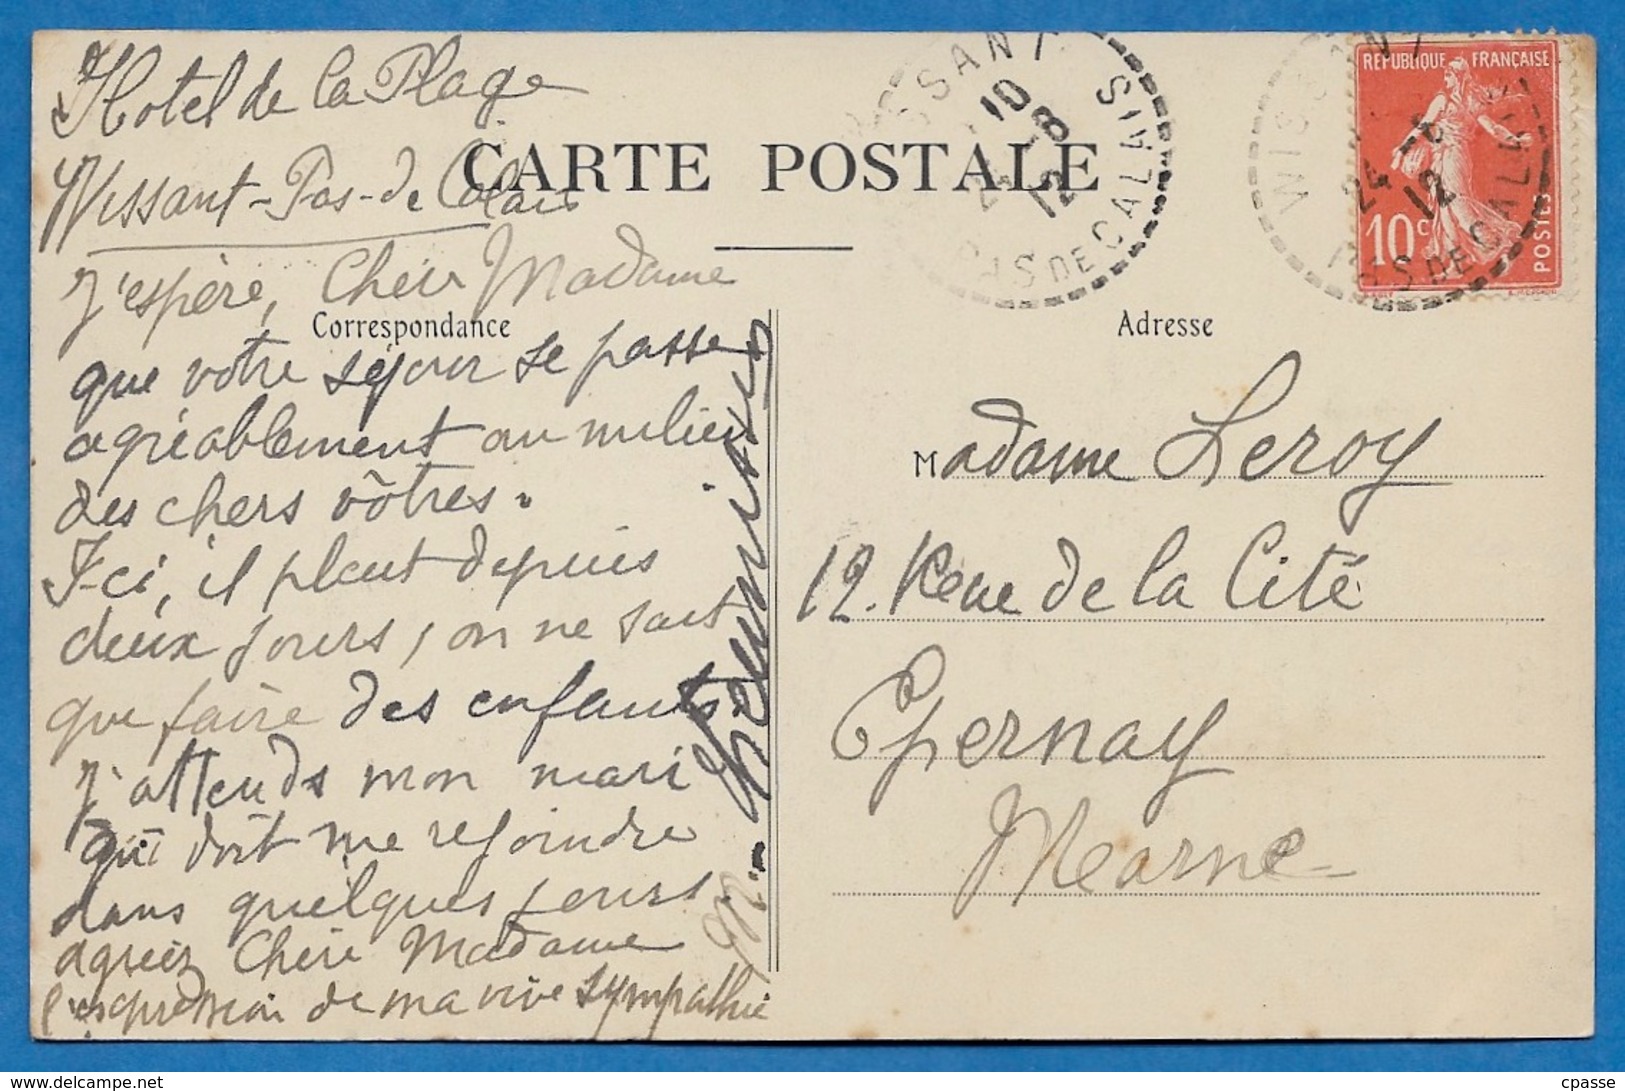 Hotel de la Plage
Wissant - Pas-de Calais
CARTE POSTALE
J'espère, Chère Madame
Correspondance
que votre séjour se passe
agréablement au milieu
des chers vôtres.
Ici, il pleut depuis
deux jours, on ne sait
que faire des enfants.
J'attends mon mari
qui doit me rejoindre
dans quelques jours
agréez Chère Madame
l'expression de ma vive sympathie
WISSANT
10
24 -8
12
PAS DE CALAIS
WISSANT
24 -8
12
PAS DE CALAIS
REPUBLIQUE FRANÇAISE
10c
POSTES
Adresse
Madame Leroy
12. Rue de la Cité
Epernay
Marne
cpasse